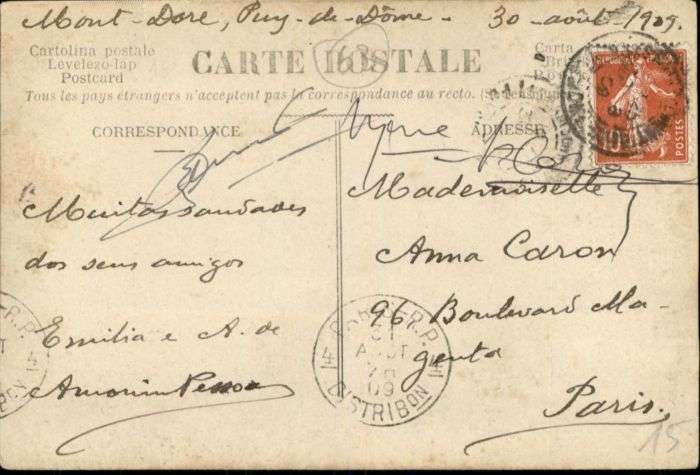 Mont-Dore, Puy-de-Dôme - 30-août-1909.
Cartolina postale
Levelezo-lap
Postcard
CARTE POSTALE
163
Carta
Tous les pays étrangers n'acceptent pas la correspondance au recto.
CORRESPONDANCE
ADRESSE
POSTES
Muitas saudades
dos seus amigos
Emilia e A. de
Amorim Pessoa
Mademoiselle
Anna Caron
96 Boulevard Ma-
genta
Paris.
PARIS
R.P.
31
AOUT
09
DISTRIBON
R.P.
15